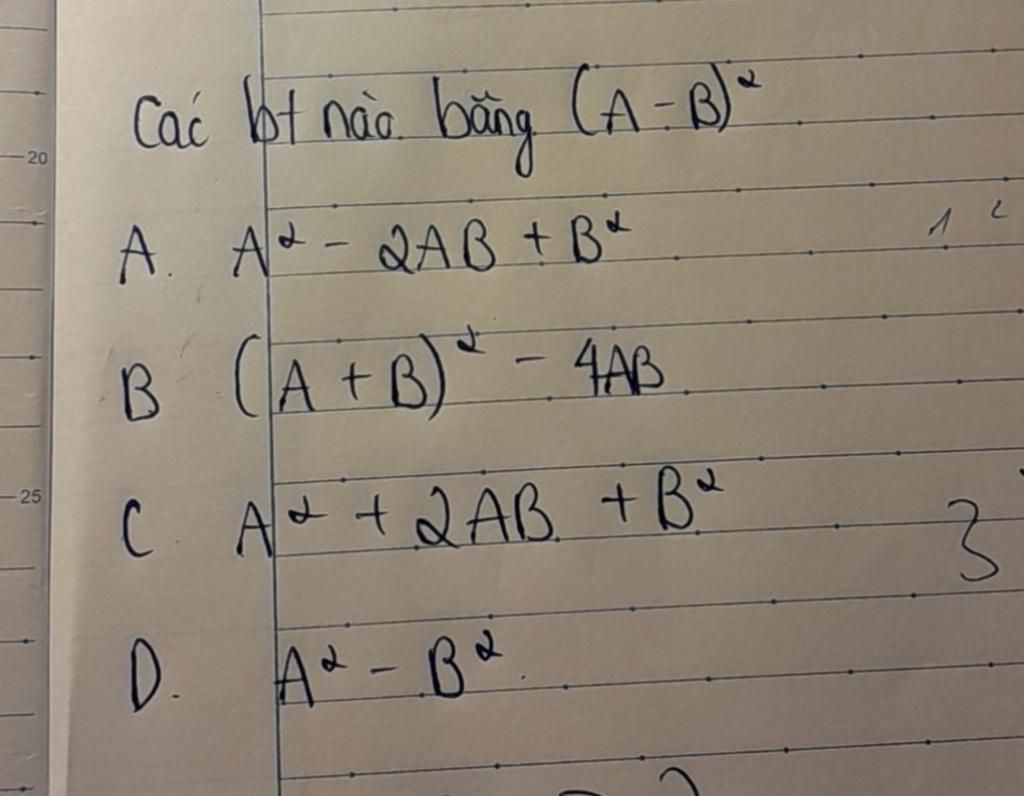 20
Các bt nào bằng (A - B)²
A. A² - 2AB + B²
B (A + B)² - 4AB
25
C A² + 2AB + B²
3
D. A² - B²